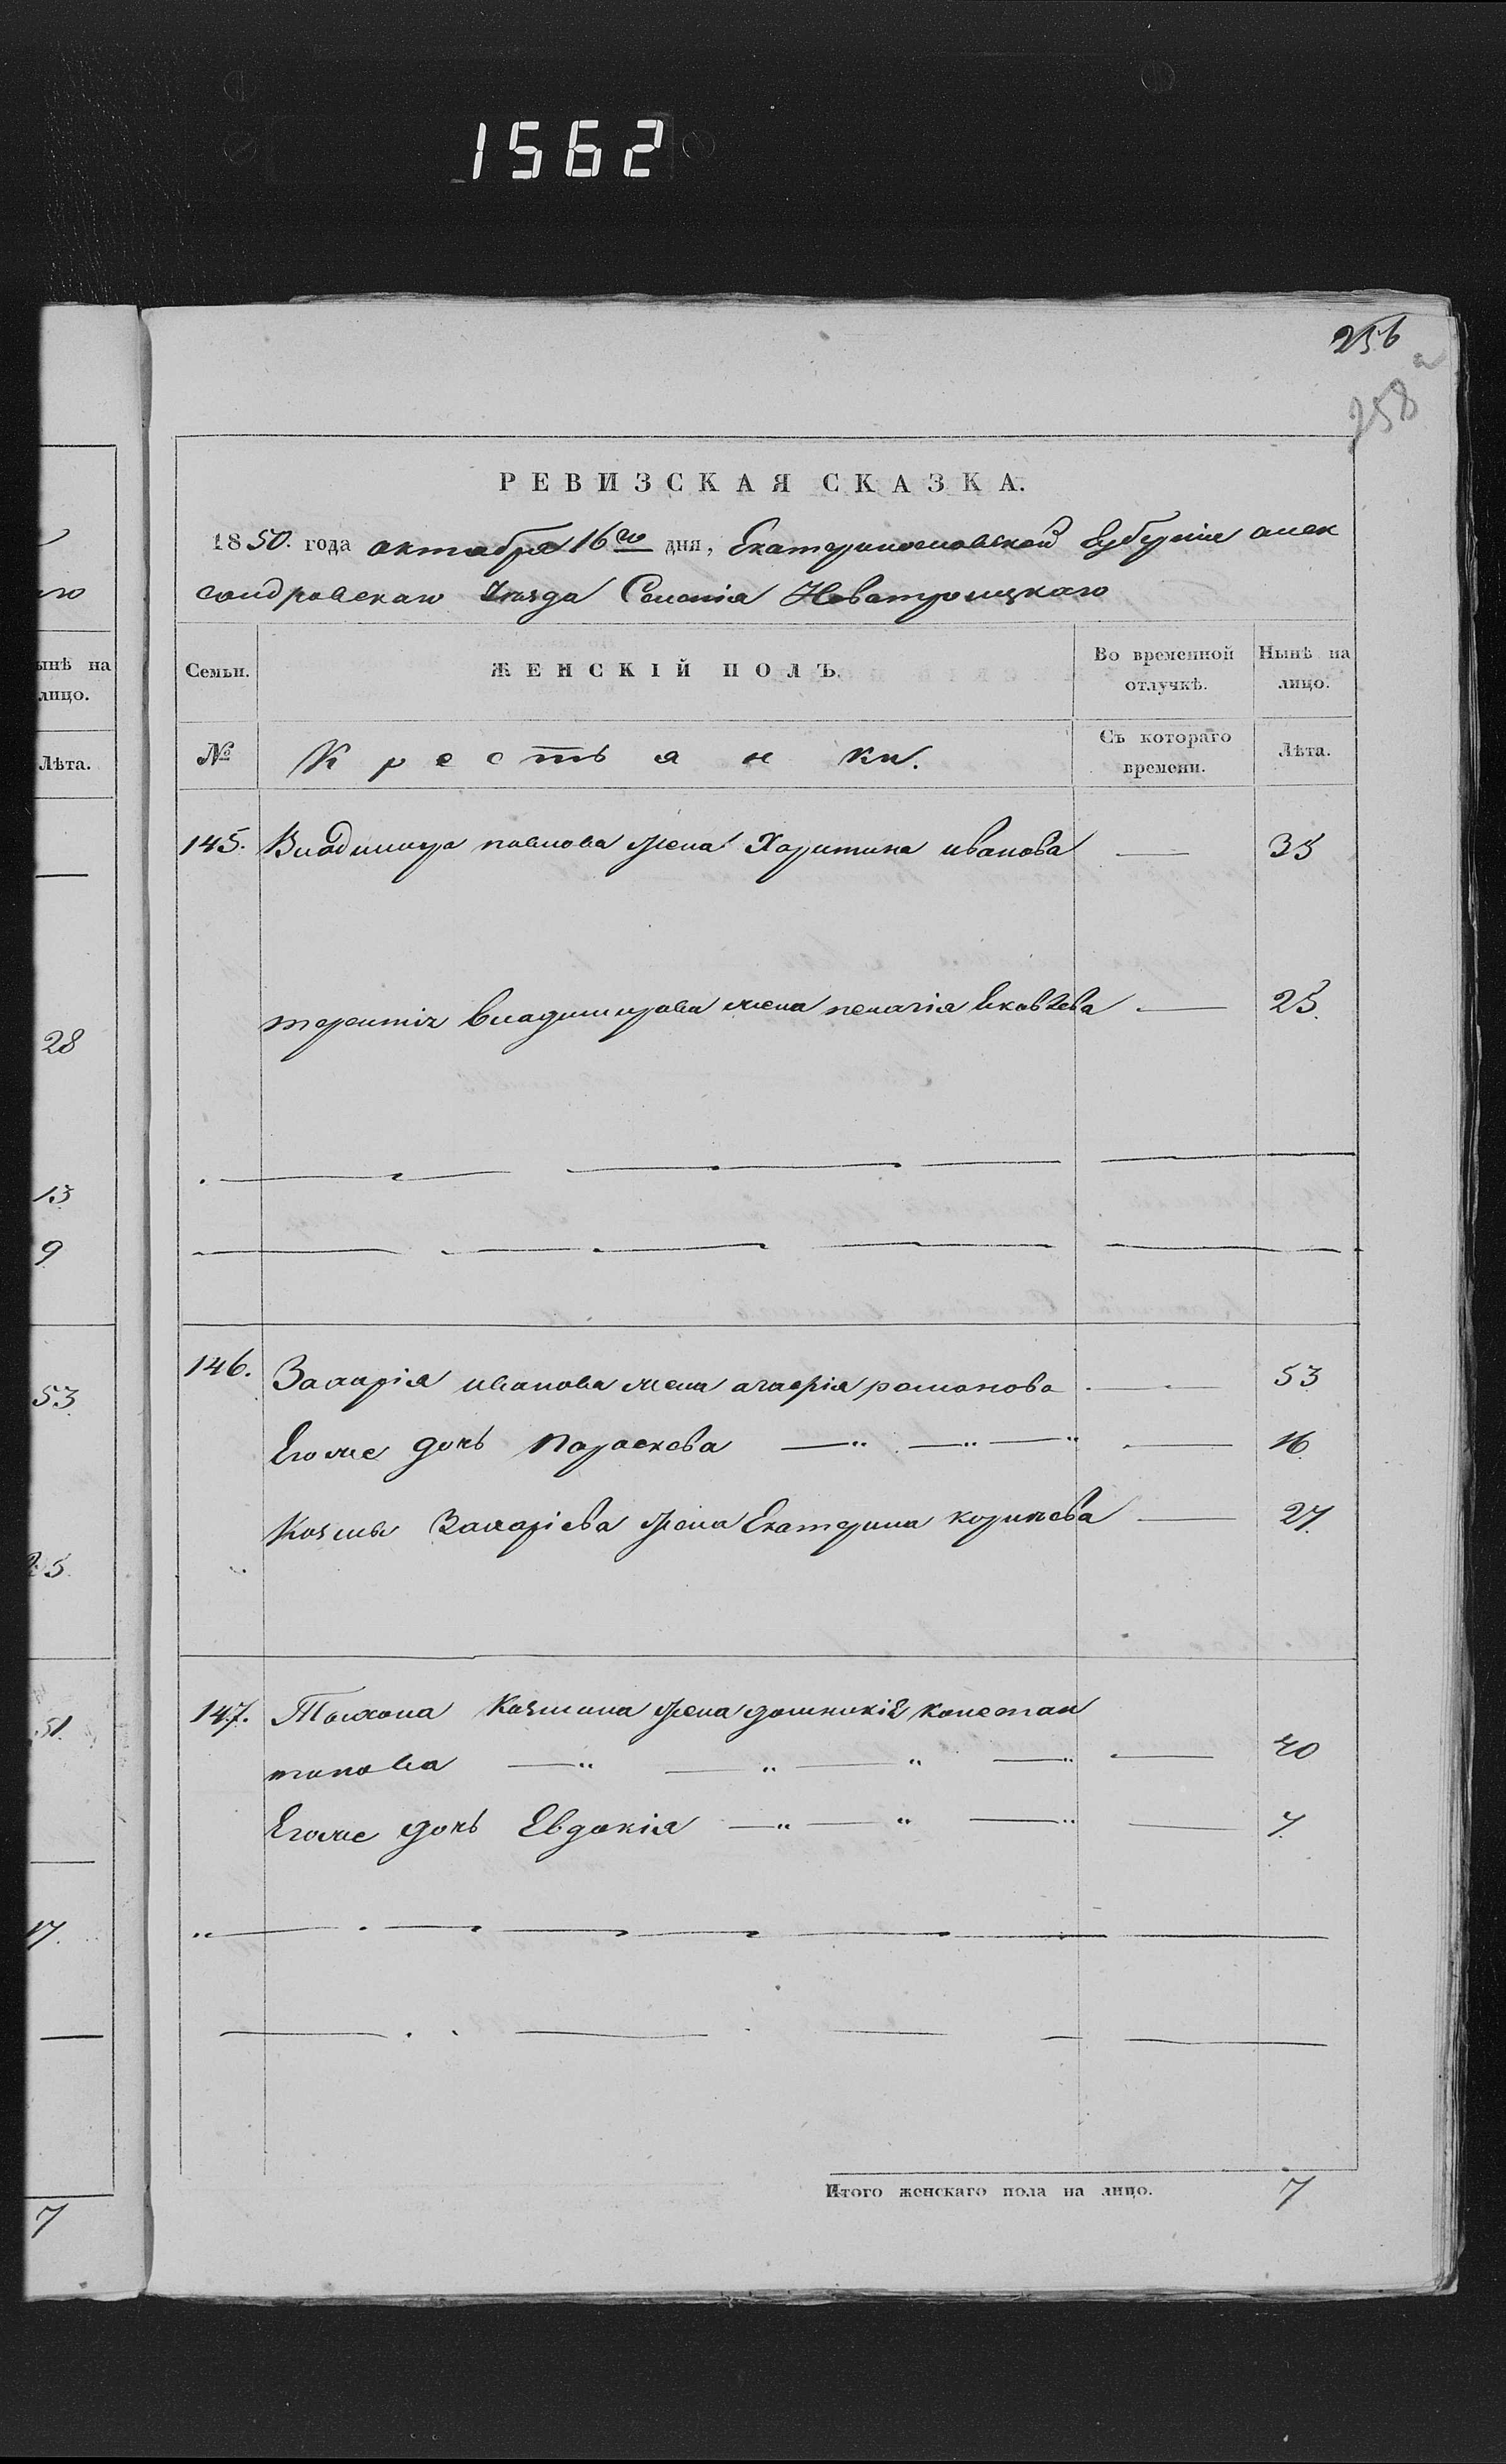 1562
256
258
а
РЕВИЗСКАЯ СКАЗКА.
1850. года октября 16го дня, Екатеринославской Губернiи алек
сандровскаго Уезда Селенiя Новотроицкаго
Семьи.
ЖЕНСКІЙ ПОЛЪ.
Во временной отлучкѣ.
Нынѣ на лицо.
№
Крестьянки.
Съ котораго времени.
Лѣта.
145. Владимира павлова жена Харитина иванова — 35
терентiя владимирова жена пелагiя Яковлева — 25.
146. Захарiя иванова жена агафiя романова — 53
Егоже дочь Параскева — " — " — " — 16
Козмы Захарiева жена Екатерина — 27.
147. Тихона Козмина жена домникiя констан
тинова — " — " — " — " — 40
Егоже дочь Евдокiя — " — " — " — 7.
Итого женскаго пола на лицо. 7
ынѣ на
лицо.
Лѣта.
28
13
9
53
51.
17.
7